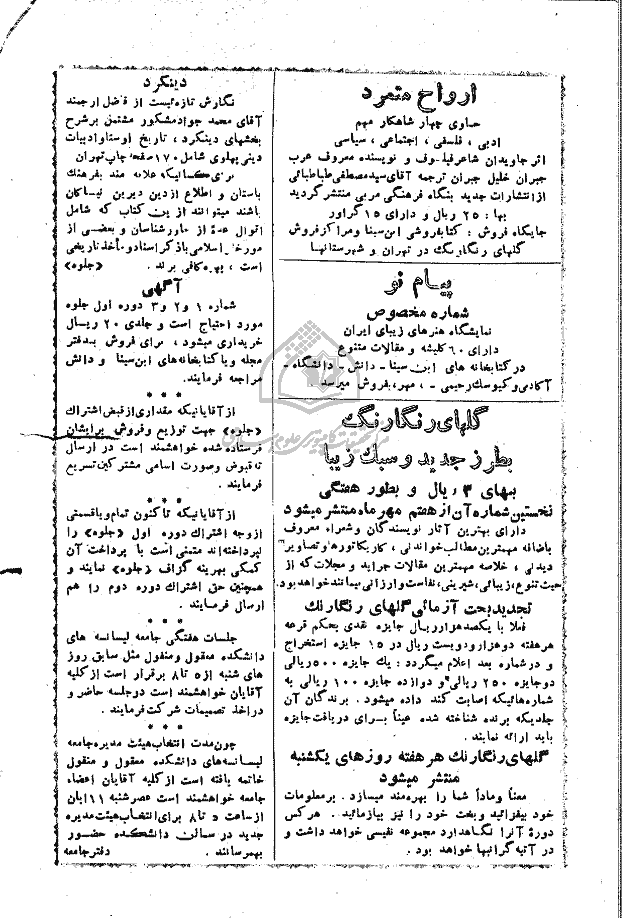 ارواح متمرد
حاوی چهار شاهکار مهم
ادبی ، فلسفی ، اجتماعی ، سیاسی
اثر جاویدان شاعر فیلسوف و نویسنده معروف عرب
جبران خلیل جبران ترجمه آقای سید مصطفی طباطبائی
از انتشارات جدید بنگاه فرهنگی مربی منتشر گردید
بها : ۲۵ ریال و دارای ۱۵ گراور
جایگاه فروش : کتابفروشی ابن سینا و مراکز فروش
گلهای رنگارنگ در تهران و شهرستانها
پیام نو
شماره مخصوص
نمایشگاه هنرهای زیبای ایران
دارای ۶۰ کلیشه و مقالات متنوع
در کتابخانه های ابن سینا - دانش - دانشگاه -
آکادمی و کیوسک رحیمی - ، مهر، بفروش میرسد
گلهای رنگارنگ
بطرز جدید و سبک زیبا
ببهای ۴ ریال و بطور هفتگی
نخستین شماره آن از هفتم مهر ماه منتشر میشود
دارای بهترین آثار نویسندگان و شعراء معروف
باضافه مهمترین مطالب خواندنی ، کاریکاتورها و تصاویر
دیدنی ، خلاصه مهمترین مقالات جراید و مجلات که از
حیث تنوع ، زیبائی ، شیرینی ، نفاست و ارزانی بیمانند خواهد بود.
تجدید بخت آزمائی گلهای رنگارنگ
فعلا با یکصد هزار ریال جایزه نقدی بحکم قرعه
هر هفته دو هزار و دویست ریال در ۱۵ جایزه استخراج
و در شماره بعد اعلام میگردد : یک جایزه ۵۰۰ ریالی
دو جایزه ۲۵۰ ریالی و دوازده جایزه ۱۰۰ ریالی به
شماره هائیکه اصابت کند داده میشود . برندگان آن
جلدیکه برنده شناخته شده عیناً برای دریافت جایزه
باید ارائه نمایند .
گلهای رنگارنگ هر هفته روزهای یکشنبه
منتشر میشود
معناً و مادتاً شما را بهره مند میسازد . بر معلومات
خود بیفزائید و بخت خود را نیز بیازمائید . هر کس
دورهٔ آنرا نگاهدارد مجموعه نفیسی خواهد داشت و
در آتیه گرانبها خواهد بود .
دینکرد
نگارش تازه ئیست از فاضل ارجمند
آقای محمد جواد مشکور مشتمل بر شرح
بخشهای دینکرد ، تاریخ اوستا و ادبیات
دینی پهلوی شامل ۱۷۰ صفحه چاپ تهران
برای کسانیکه علاقه مند بفرهنگ
باستان و اطلاع از دین دیرین نیاکان
باشند میتوانند از این کتاب که شامل
اقوال عدهٔ از خاورشناسان و بعضی از
مورخین اسلامی با ذکر اسناد و مآخذ تاریخی
است ، بهره کافی برند . (جلوه)
آگهی
شماره ۱ و ۲ و ۳ دوره اول جلوه
مورد احتیاج است و جلدی ۲۰ ریال
خریداری میشود ، برای فروش بدفتر
مجله و یا کتابخانه های ابن سینا و دانش
مراجعه فرمایند.
از آقایانیکه مقداری از قبض اشتراک
(جلوه) جهت توزیع و فروش برایشان
فرستاده شده خواهشمند است در ارسال
ته قبوض و صورت اسامی مشترکین تسریع
فرمایند .
* * *
از آقایانیکه تا کنون تمام و یا قسمتی
از وجه اشتراک دوره اول (جلوه) را
نپرداخته اند متمنی است با پرداخت آن
کمکی بهزینه گزاف (جلوه) نمایند و
همچنین حق اشتراک دوره دوم را هم
ارسال فرمایند .
* * *
جلسات هفتگی جامعه لیسانسه های
دانشکده معقول و منقول مثل سابق روز
های شنبه از ۵ تا ۸ برقرار است از کلیه
آقایان خواهشمند است در جلسه حاضر و
در اخذ تصمیمات شرکت فرمایند .
* * *
چون مدت انتخاب هیئت مدیره جامعه
لیسانسه های دانشکده معقول و منقول
خاتمه یافته است از کلیه آقایان اعضاء
جامعه خواهشمند است عصر شنبه ۱۱ آبان
از ساعت ۵ تا ۸ برای انتخاب هیئت مدیره
جدید در سالن دانشکده حضور
بهمرسانند . دفتر جامعه